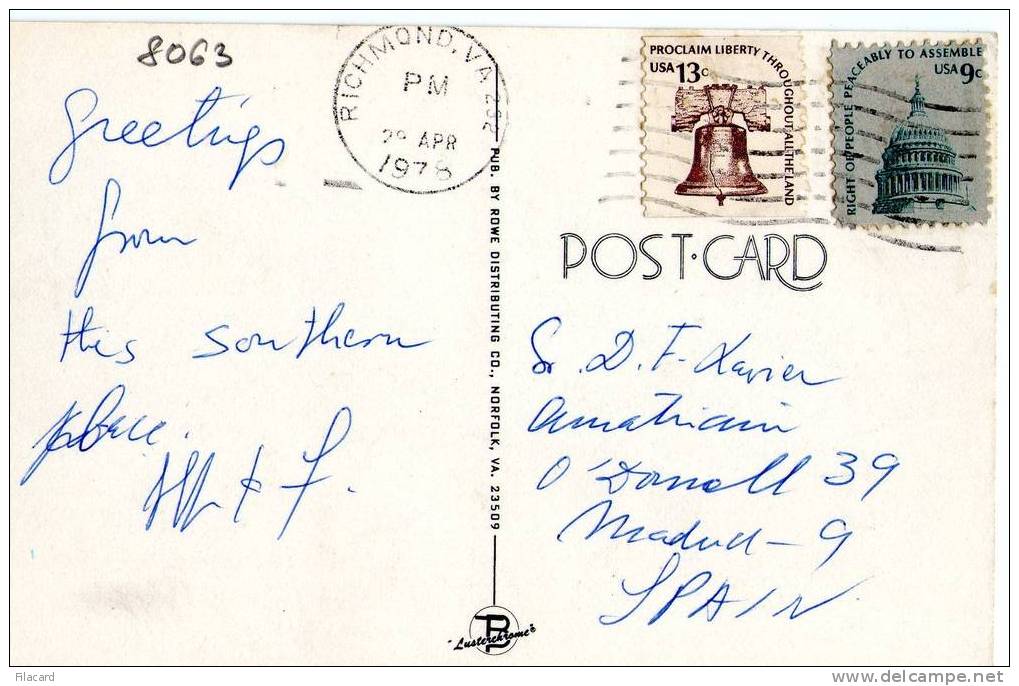 8063
Greetings
from
this southern
place.
& F.
RICHMOND, VA 232
PM
29 APR
1978
PROCLAIM LIBERTY THROUGHOUT ALL THE LAND
USA 13c
RIGHT OF PEOPLE PEACEABLY TO ASSEMBLE
USA 9c
PUB. BY ROWE DISTRIBUTING CO., NORFOLK, VA. 23509
POST·CARD
Sr. D. F. Xavier
O'Donell 39
Madrid - 9
SPAIN
"Lusterchrome"®
Filacard
www.delcampe.net